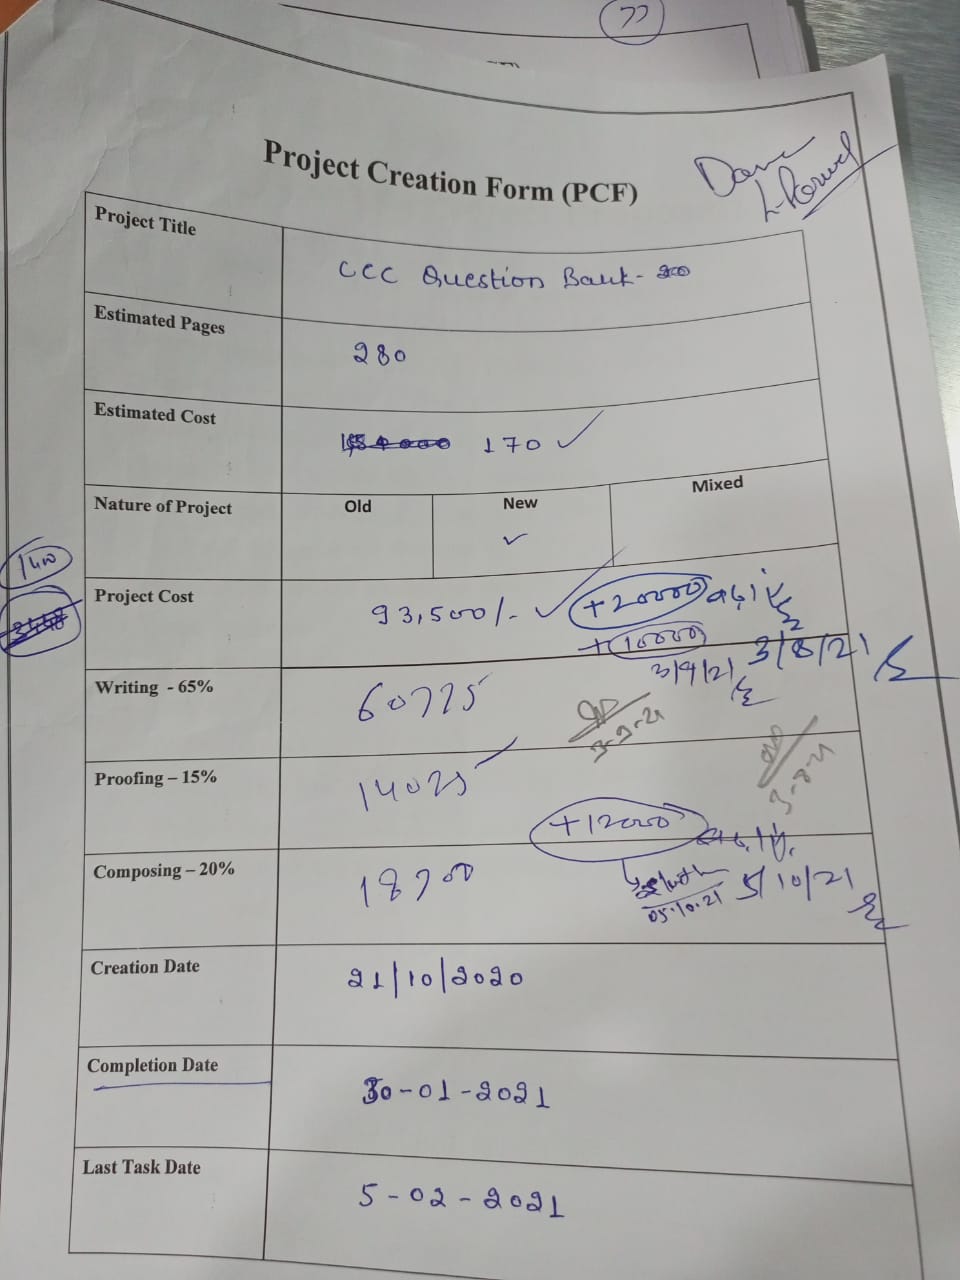 77
Project Creation Form (PCF)
Done
Project Title
CCC Question Bank-
Estimated Pages
280
Estimated Cost
170 ✓
Nature of Project
Old
New
Mixed
✓
140
3448
Project Cost
93,500/- ✓
+20000
+10000
3/8/21
3/9/21
Writing - 65%
60775
3-9-21
3-8-21
Proofing – 15%
14025
+12000
Composing – 20%
18700
05.10.21
5/10/21
Creation Date
21/10/2020
Completion Date
30-01-2021
Last Task Date
5-02-2021